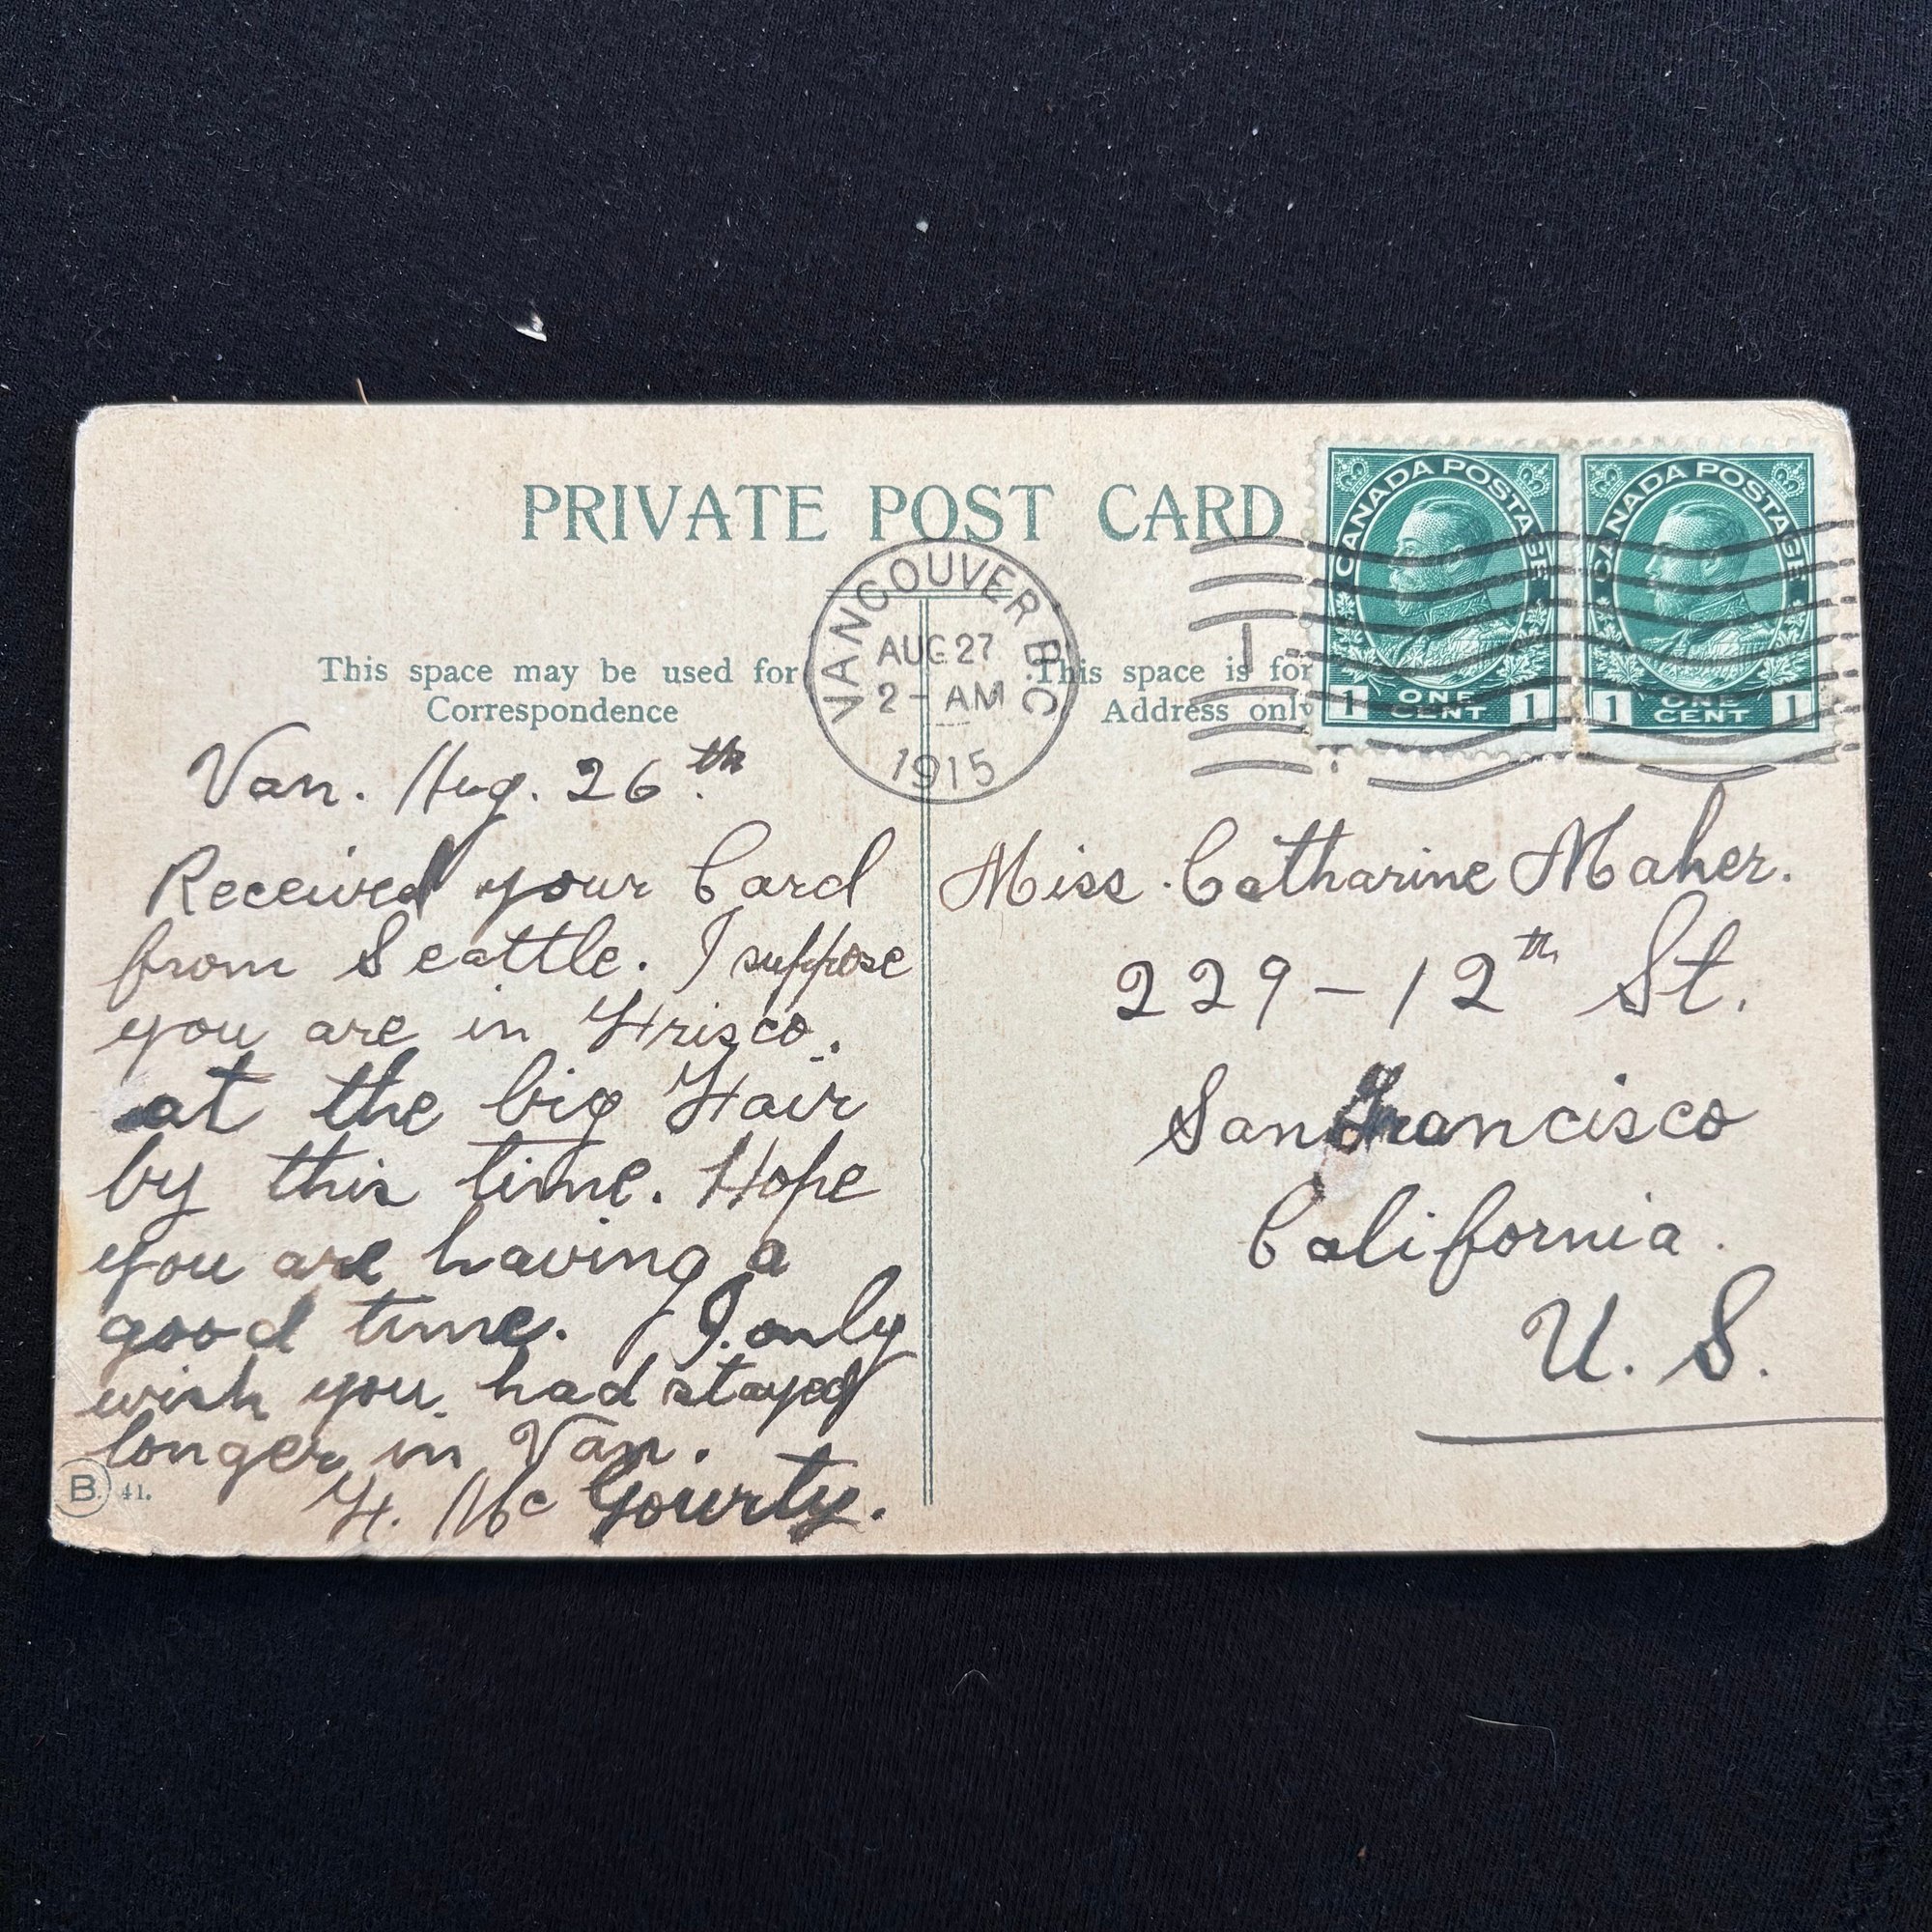 PRIVATE POST CARD
CANADA POSTAGE
1 ONE CENT 1
CANADA POSTAGE
1 ONE CENT 1
VANCOUVER B.C.
AUG 27
2 - AM
1915
1
This space may be used for
Correspondence
This space is for
Address only
Van. Aug. 26th.
Received your Card
from Seattle. I suppose
you are in Frisco.
at the big Fair
by this time. Hope
you are having a
good time. I only
wish you had stayed
longer in Van.
F. Mc Gourty.
B. 41.
Miss Catharine Maher.
229 - 12th St.
San Francisco
California.
U. S.